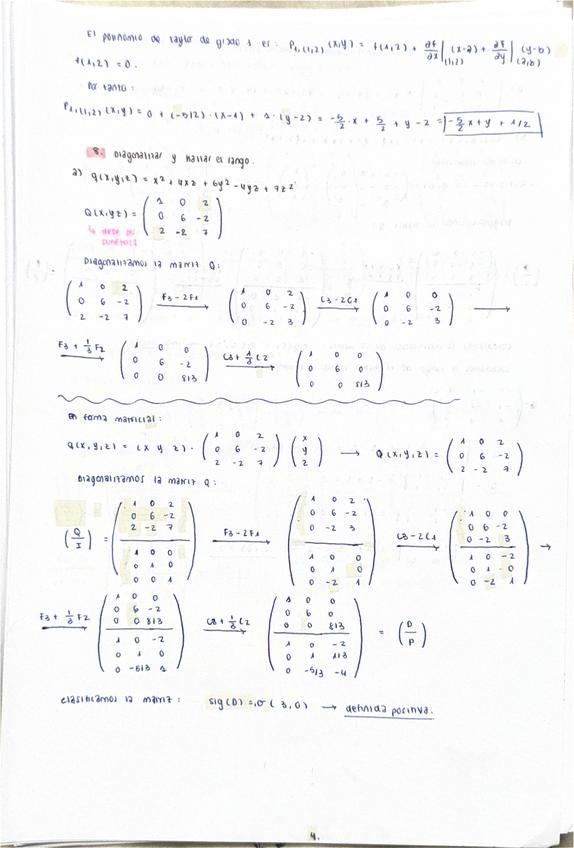 El polinomio de Taylor de grado 1 es: P₁,(1,2) (x,y) = f(1,2) + ∂f/∂x |(1,2) (x-a) + ∂f/∂y |(a,b) (y-b)
f(1,2) = 0.
Por tanto:
P₁,(1,2) (x,y) = 0 + (-5/2) · (x-1) + 1 · (y-2) = -5/2 · x + 5/2 + y - 2 = -5/2 x + y + 1/2
8. Diagonalizar y hallar el rango.
a) q(x,y,z) = x² + 4xz + 6y² - 4yz + 7z²
Q(x,y,z) = ( 1 0 2
0 6 -2
2 -2 7 )
Diagonalizamos la matriz Q:
( 1 0 2 / 0 6 -2 / 2 -2 7 ) F3-2F1 → ( 1 0 2 / 0 6 -2 / 0 -2 3 ) C3-2C1 → ( 1 0 0 / 0 6 -2 / 0 -2 3 ) →
F3 + 1/3 F2 → ( 1 0 0 / 0 6 -2 / 0 0 8/3 ) C3 + 1/3 C2 → ( 1 0 0 / 0 6 0 / 0 0 8/3 )
En forma matricial:
Q(x,y,z) = (x y z) · ( 1 0 2 / 0 6 -2 / 2 -2 7 ) ( x / y / z ) → Q(x,y,z) = ( 1 0 2 / 0 6 -2 / 2 -2 7 )
Diagonalizamos la matriz Q:
(Q/I) = ( 1 0 2 / 0 6 -2 / 2 -2 7 / 1 0 0 / 0 1 0 / 0 0 1 ) F3-2F1 → ( 1 0 2 / 0 6 -2 / 0 -2 3 / 1 0 0 / 0 1 0 / 0 -2 1 ) C3-2C1 → ( 1 0 0 / 0 6 -2 / 0 -2 3 / 1 0 -2 / 0 1 0 / 0 -2 1 ) →
F3 + 1/3 F2 → ( 1 0 0 / 0 6 -2 / 0 0 8/3 / 1 0 -2 / 0 1 0 / 0 -5/3 1 ) C3 + 1/3 C2 → ( 1 0 0 / 0 6 0 / 0 0 8/3 / 1 0 -2 / 0 1 1/3 / 0 -5/3 -4 ) = (D/P)
Clasificamos la matriz: sig(D) = σ(3,0) → definida positiva.
4.